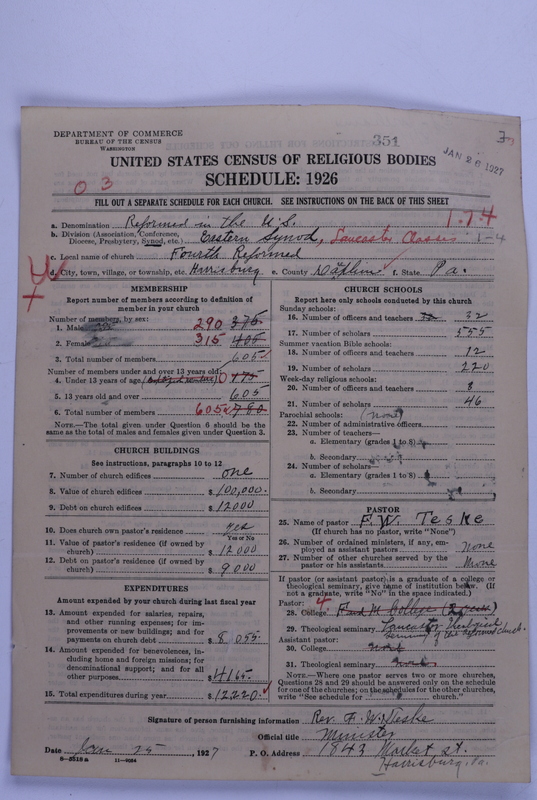 DEPARTMENT OF COMMERCE
BUREAU OF THE CENSUS
WASHINGTON
351
JAN 28 1927
UNITED STATES CENSUS OF RELIGIOUS BODIES
SCHEDULE: 1926
03
FILL OUT A SEPARATE SCHEDULE FOR EACH CHURCH. SEE INSTRUCTIONS ON THE BACK OF THIS SHEET
a. Denomination Reformed in the U.S. 1-74
b. Division (Association, Conference, Diocese, Presbytery, Synod, etc.) Eastern Synod, Lancaster Classis 1-4
c. Local name of church Fourth Reformed
d. City, town, village, or township, etc. Harrisburg e. County Dauphin f. State Pa.
MEMBERSHIP
Report number of members according to definition of member in your church
Number of members, by sex:
1. Male 290 375
2. Female 315 405
3. Total number of members 605
Number of members under and over 13 years old:
4. Under 13 years of age 0 175
5. 13 years old and over 605
6. Total number of members 605 780
NOTE.—The total given under Question 6 should be the same as the total of males and females given under Question 3.
CHURCH BUILDINGS
See instructions, paragraphs 10 to 12
7. Number of church edifices one
8. Value of church edifices $100,000.
9. Debt on church edifices $12000
10. Does church own pastor's residence yes
Yes or No
11. Value of pastor's residence (if owned by church) $12000
12. Debt on pastor's residence (if owned by church) $9000
EXPENDITURES
Amount expended by church during last fiscal year
13. Amount expended for salaries, repairs, and other running expenses; for improvements or new building; and for payments on church debt $8055
14. Amount expended for benevolences, including home and foreign missions; for denominational support; and for all other purposes $4165
15. Total expenditures during year $12220
CHURCH SCHOOLS
Report here only schools conducted by this church
Sunday schools:
16. Number of officers and teachers 32
17. Number of scholars 555
Summer vacation Bible schools:
18. Number of officers and teachers 12
19. Number of scholars 220
Week-day religious schools:
20. Number of officers and teachers 8
21. Number of scholars 46
Parochial schools: (none)
22. Number of administrative officers
23. Number of teachers—
a. Elementary (grades 1 to 8)
b. Secondary
24. Number of scholars—
a. Elementary (grades 1 to 8)
b. Secondary
PASTOR
25. Name of pastor F. W. Teske
(If church has no pastor, write "None")
26. Number of ordained ministers, if any, employed as assistant pastors none
27. Number of other churches served by the pastor or his assistants none
If pastor (or assistant pastor) is a graduate of a college or theological seminary, give name of institution below. (If not a graduate, write "No" in the space indicated.)
Pastor:
28. College F and M College
29. Theological seminary Lancaster Theological seminary of the reformed church.
Assistant pastor:
30. College none
31. Theological seminary none
NOTE.—Where one pastor serves two or more churches, Questions 28 and 29 should be answered only on the schedule for one of the churches; on the schedules for the other churches, write "See schedule for church."
Signature of person furnishing information Rev. F. W. Teske
Official title Minister
Date Jan 25, 1927 P. O. Address 1843 Market st.
Harrisburg, Pa.